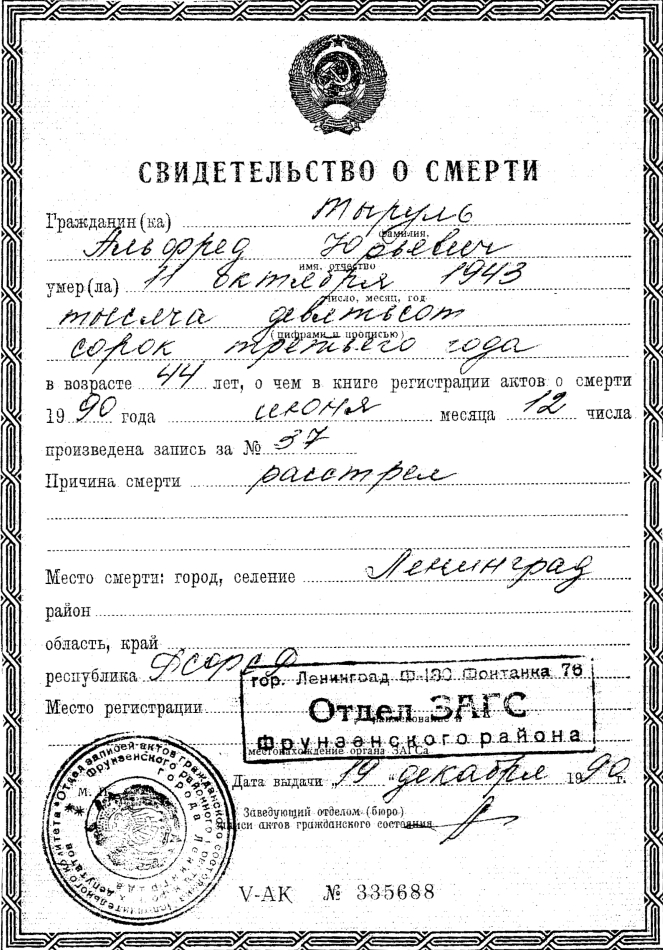 СВИДЕТЕЛЬСТВО О СМЕРТИ
Гражданин(ка) Тыруль
фамилия,
Альфред Юрьевич
имя, отчество
умер(ла) 11 октября 1943
число, месяц, год
тысяча девятьсот
(цифрами и прописью)
сорок третьего года
в возрасте 44 лет, о чем в книге регистрации актов о смерти
19 90 года июня месяца 12 числа
произведена запись за № 37
Причина смерти расстрел
Место смерти: город, селение Ленинград
район
область, край
республика РСФСР
гор. Ленинград Ф-180 Фонтанка 76
Место регистрации Отдел ЗАГС
Фрунзенского района
местонахождение органа ЗАГСа
Дата выдачи „19" декабря 1990 г.
М. П.
Заведующий отделом (бюро)
записи актов гражданского состояния
Отдел записей актов гражданского состояния
Фрунзенского районного
города Ленинграда
депутатов
V-АК № 335688